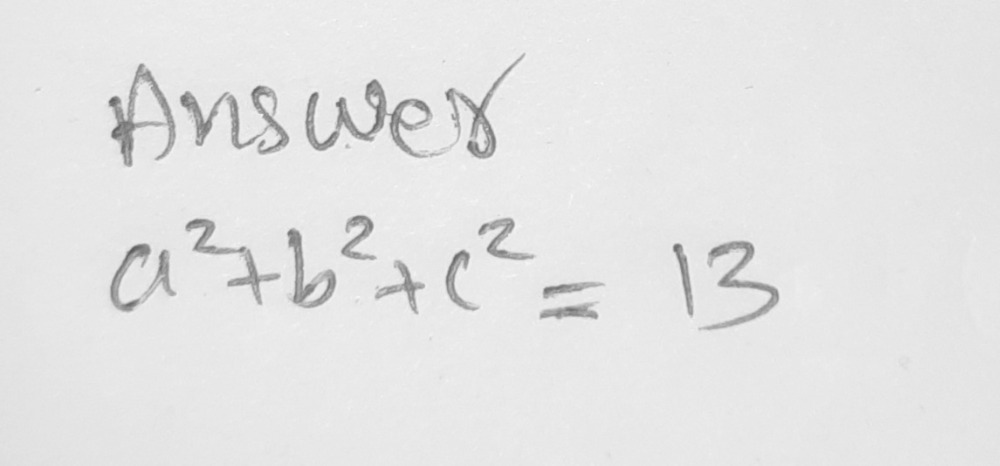 Answer
a²+b²+c² = 13